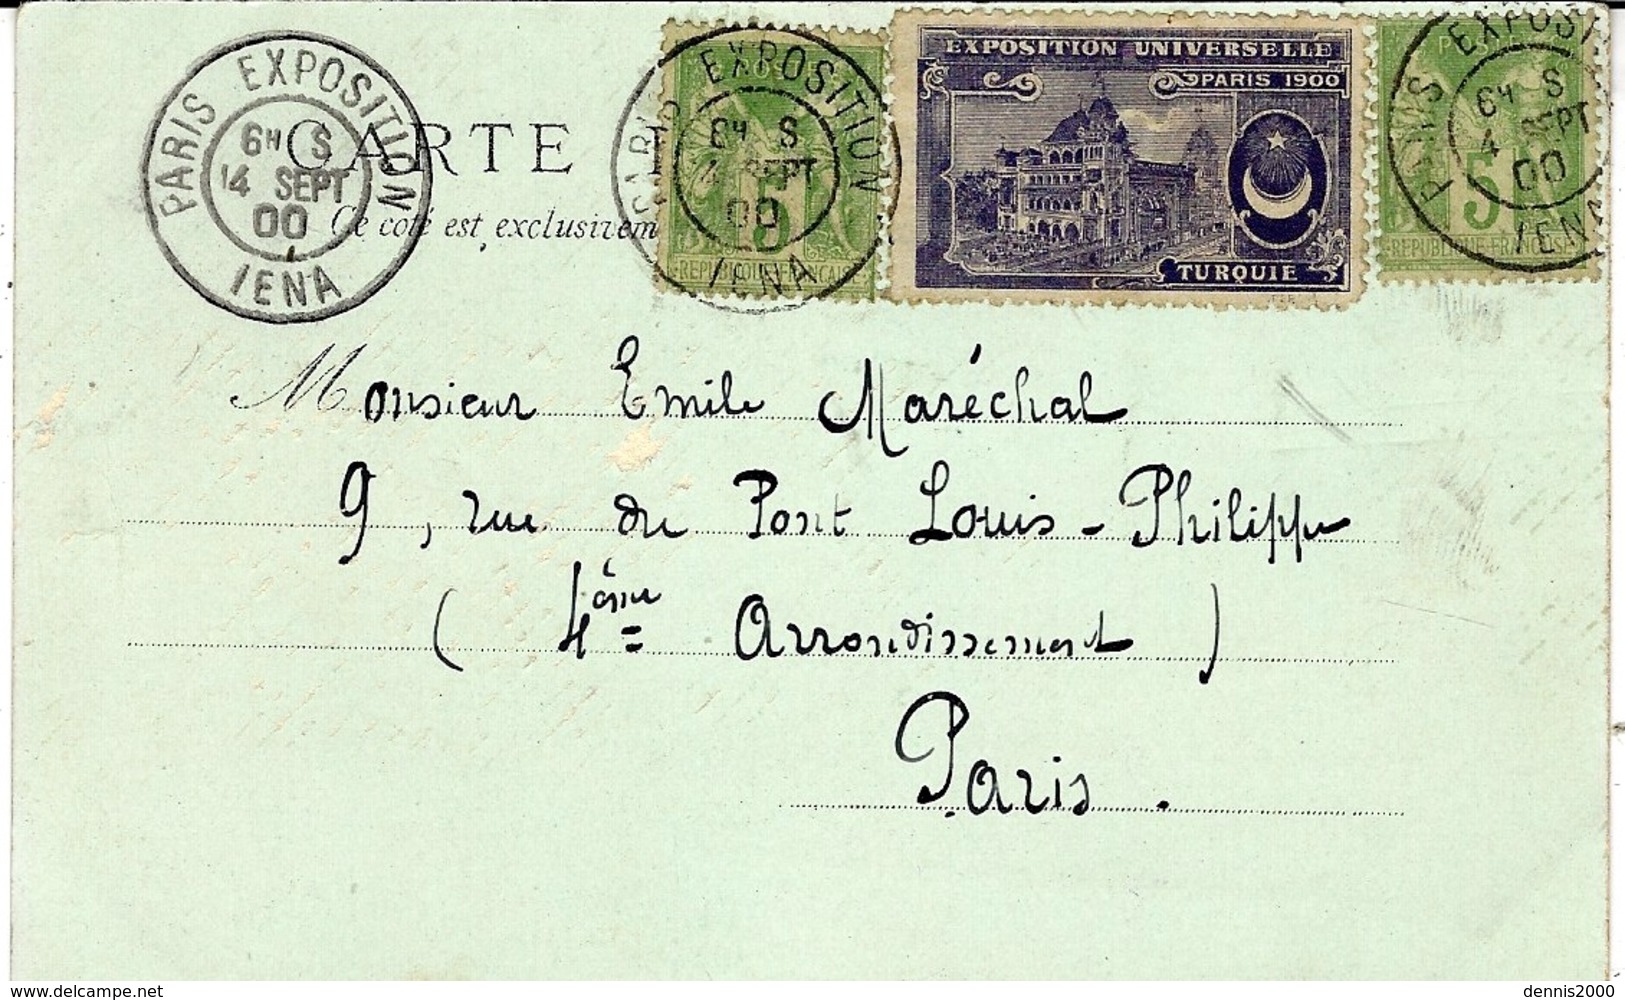 PARIS EXPOSITION
6H S
14 SEPT
00
IENA
CARTE
Ce côté est exclusivem
POSTE
5
REPUBLIQUE FRANÇAISE
PARIS EXPOSITION
6H S
4 SEPT
00
IENA
EXPOSITION UNIVERSELLE
PARIS 1900
TURQUIE
5
REPUBLIQUE FRANÇAISE
PARIS EXPOSIT
6H S
4 SEPT
00
IENA
Monsieur Emile Maréchal
9, rue du Pont Louis-Philippe
(4ème Arrondissement)
Paris.
www.delcampe.net
dennis2000